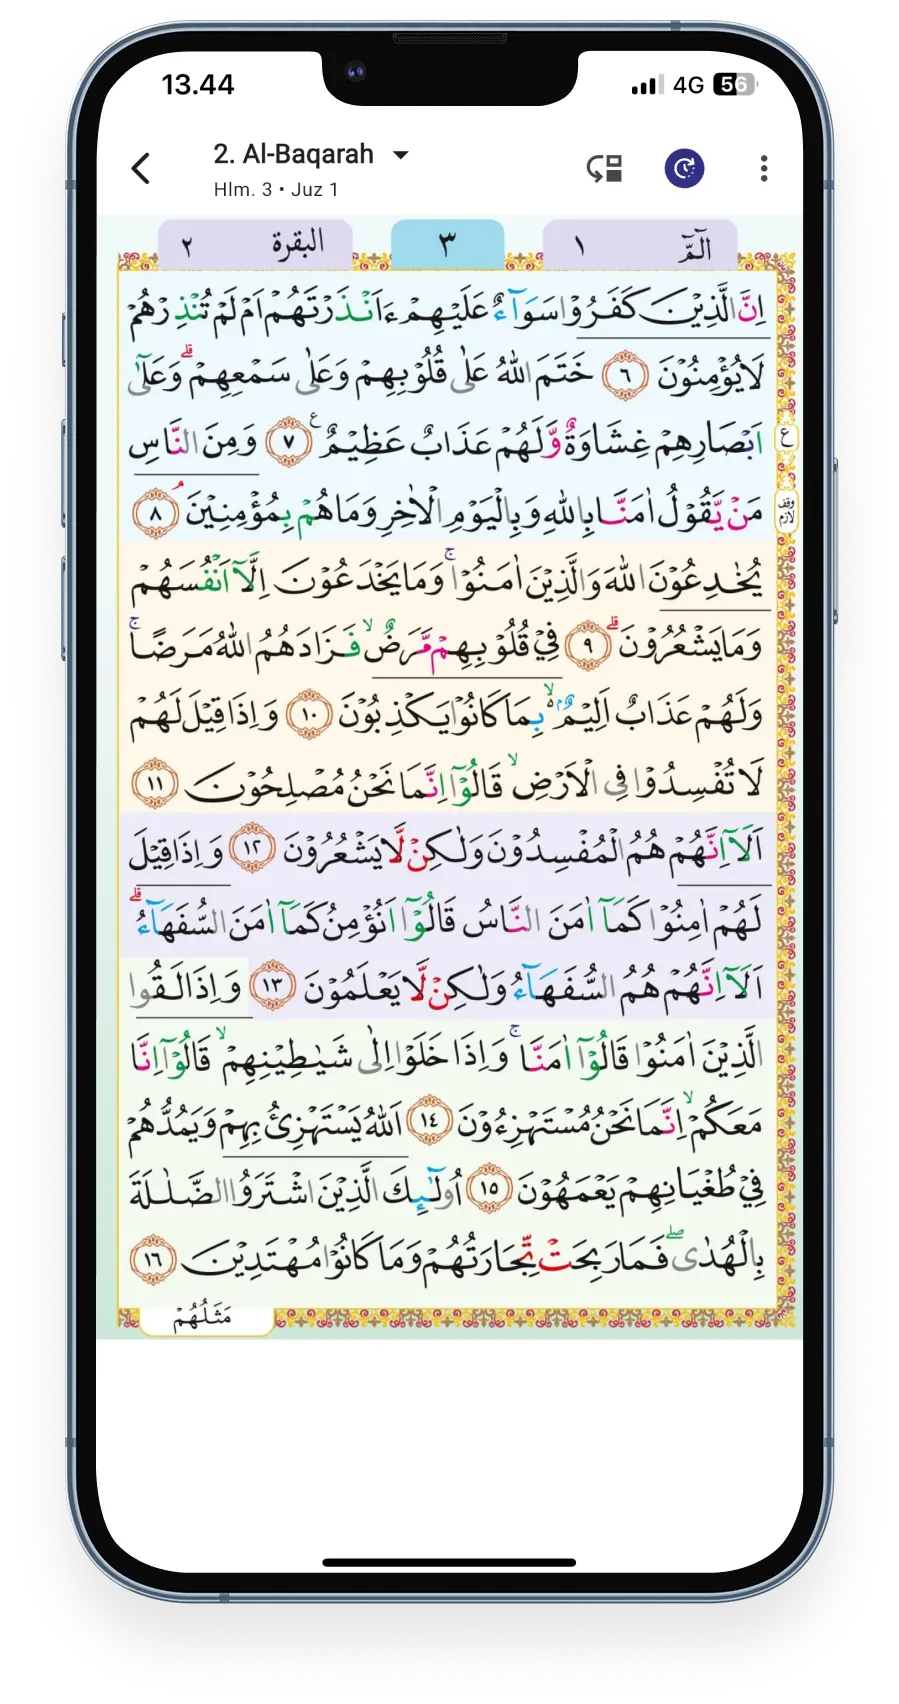 13.44 4G 56
2. Al-Baqarah
Hlm. 3 • Juz 1
الٓمّٓ ١ ٣ البقرة ٢
اِنَّ الَّذِيْنَ كَفَرُوْا سَوَآءٌ عَلَيْهِمْ ءَاَنْذَرْتَهُمْ اَمْ لَمْ تُنْذِرْهُمْ
لَا يُؤْمِنُوْنَ ٦ خَتَمَ اللّٰهُ عَلٰى قُلُوْبِهِمْ وَعَلٰى سَمْعِهِمْ ۗ وَعَلٰٓى
اَبْصَارِهِمْ غِشَاوَةٌ وَّلَهُمْ عَذَابٌ عَظِيْمٌ ࣖ ٧ وَمِنَ النَّاسِ
ع
مَنْ يَّقُوْلُ اٰمَنَّا بِاللّٰهِ وَبِالْيَوْمِ الْاٰخِرِ وَمَا هُمْ بِمُؤْمِنِيْنَ ۘ ٨
وقف لازم
يُخٰدِعُوْنَ اللّٰهَ وَالَّذِيْنَ اٰمَنُوْا ۚ وَمَا يَخْدَعُوْنَ اِلَّآ اَنْفُسَهُمْ
وَمَا يَشْعُرُوْنَ ۗ ٩ فِيْ قُلُوْبِهِمْ مَّرَضٌ ۙ فَزَادَهُمُ اللّٰهُ مَرَضًا ۚ
وَلَهُمْ عَذَابٌ اَلِيْمٌ ۢ ۙ بِمَا كَانُوْا يَكْذِبُوْنَ ١٠ وَاِذَا قِيْلَ لَهُمْ
لَا تُفْسِدُوْا فِى الْاَرْضِ ۙ قَالُوْٓا اِنَّمَا نَحْنُ مُصْلِحُوْنَ ١١
اَلَآ اِنَّهُمْ هُمُ الْمُفْسِدُوْنَ وَلٰكِنْ لَّا يَشْعُرُوْنَ ١٢ وَاِذَا قِيْلَ
لَهُمْ اٰمِنُوْا كَمَآ اٰمَنَ النَّاسُ قَالُوْٓا اَنُؤْمِنُ كَمَآ اٰمَنَ السُّفَهَآءُ ۗ
اَلَآ اِنَّهُمْ هُمُ السُّفَهَآءُ وَلٰكِنْ لَّا يَعْلَمُوْنَ ١٣ وَاِذَا لَقُوا
الَّذِيْنَ اٰمَنُوْا قَالُوْٓا اٰمَنَّا ۚ وَاِذَا خَلَوْا اِلٰى شَيٰطِيْنِهِمْ ۙ قَالُوْٓا اِنَّا
مَعَكُمْ ۙ اِنَّمَا نَحْنُ مُسْتَهْزِءُوْنَ ١٤ اَللّٰهُ يَسْتَهْزِئُ بِهِمْ وَيَمُدُّهُمْ
فِيْ طُغْيَانِهِمْ يَعْمَهُوْنَ ١٥ اُولٰۤىِٕكَ الَّذِيْنَ اشْتَرَوُا الضَّلٰلَةَ
بِالْهُدٰى ۖ فَمَا رَبِحَتْ تِّجَارَتُهُمْ وَمَا كَانُوْا مُهْتَدِيْنَ ١٦
مَثَلُهُمْ